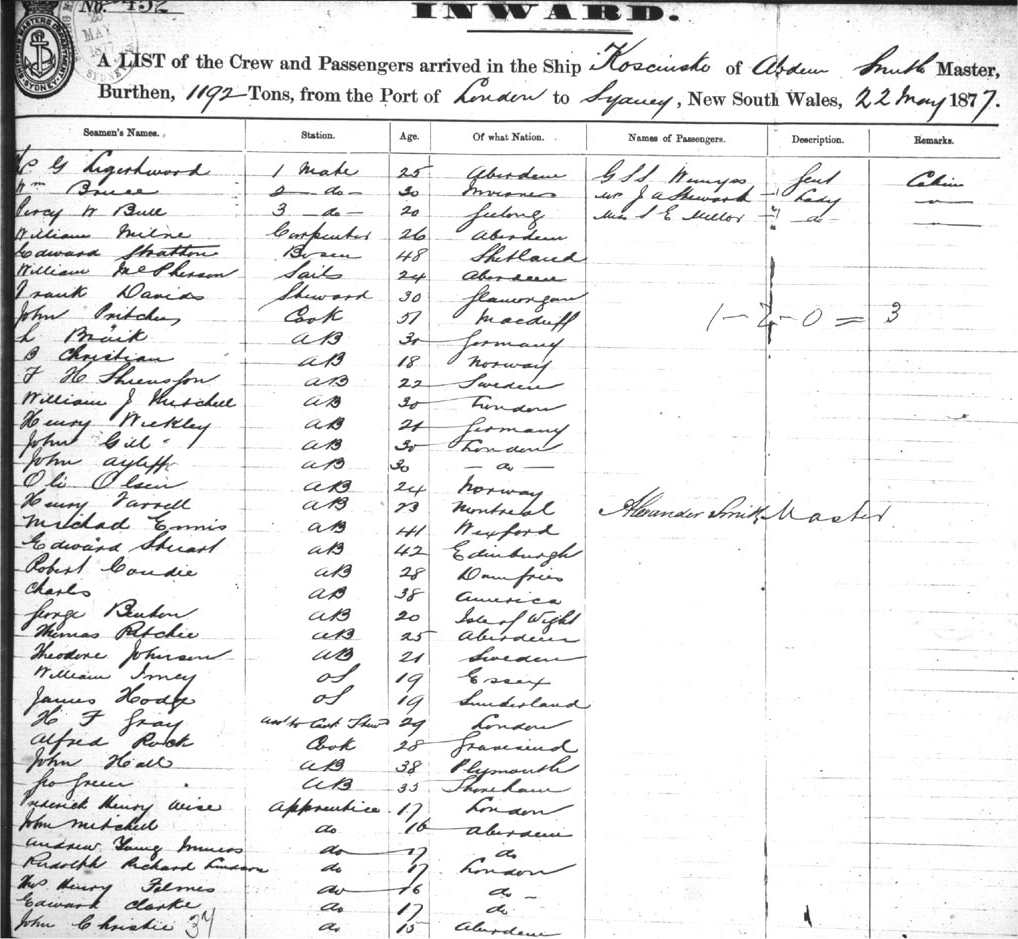 No. 452
INWARD.
MAY
1877
SYDNEY
A LIST of the Crew and Passengers arrived in the Ship Kosciusko of Abdeen Smith Master,
Burthen, 1192 Tons, from the Port of London to Sydney, New South Wales, 22 May 1877.
Seamen's Names. Station. Age. Of what Nation. Names of Passengers. Description. Remarks.
C G Ligertwood 1 Mate 25 Aberdeen G S S Wemyss Gent Cabin
Wm Bruce 2 - do - 30 Inverness Mrs J A Stewart Lady
Percy W Bull 3 - do - 20 Geelong Miss S E Mellor - do -
William Milne Carpenter 26 Aberdeen
Edward Stratton Bosen 48 Shetland
William McPherson Sails 24 Aberdeen
Frank Davids Steward 30 Glamorgan
John Pritchers Cook 51 Macduff 1 - 2 - 0 = 3
L Bräik AB 30 Germany
B Christian AB 18 Norway
F H AB 22 Sweden
William J Mitchell AB 30 London
Henry Wickley AB 21 Germany
John Gill AB 30 London
John Ayliff AB 30 - do -
Ole Olsen AB 24 Norway
Henry Farrell AB 23 Montreal Alexander Smith Master
Michael Ennis AB 41 Wexford
Edward Stuart AB 42 Edinburgh
Robert Goudie AB 28 Dumfries
Charles AB 38 America
George Benton AB 20 Isle of Wight
Thomas Ritchie AB 25 Aberdeen
Theodore Johnson AB 21 Sweden
William Imey OS 19 Essex
James Hodge OS 19 Sunderland
H F Gray Asst to Cook Stew 29 London
Alfred Rock Cook 28 Gravesend
John Hall AB 38 Plymouth
Geo Green AB 33 Shoreham
Frederick Henry Wise Apprentice 17 London
John Mitchell do 16 Aberdeen
Andrew Young do 17 do
Rudolph Richard do 17 London
Thos Henry Folmes do 16 do -
Edward Clarke do 17 do
John Christie 37 do 15 Aberdeen